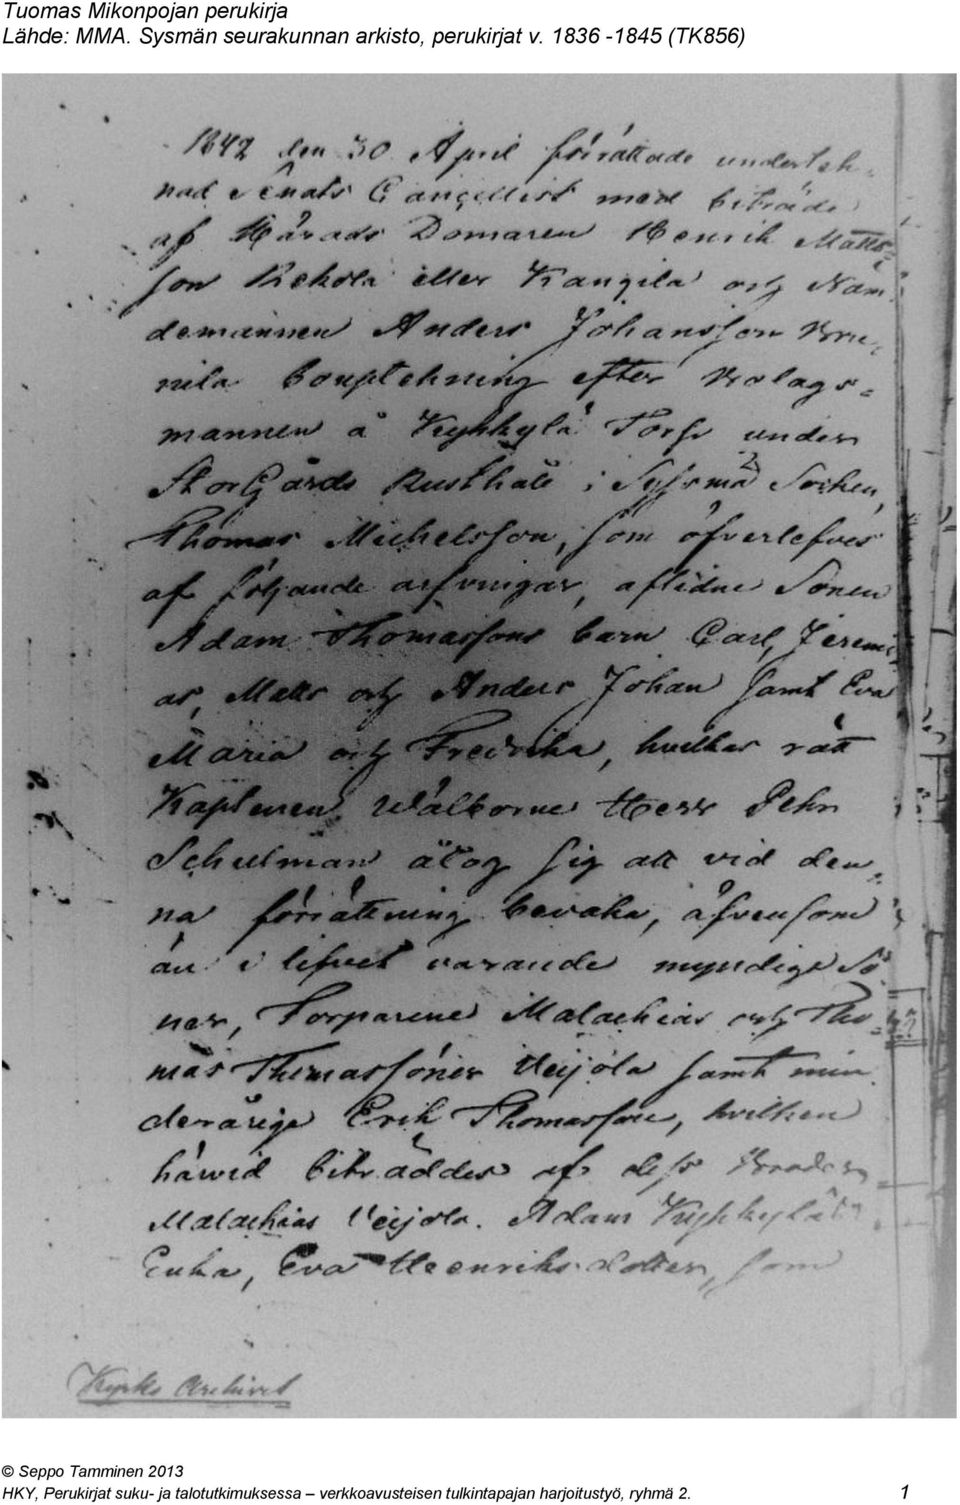 Tuomas Mikonpojan perukirja
Lähde: MMA. Sysmän seurakunnan arkisto, perukirjat v. 1836 -1845 (TK856)
1842 den 30 April förrättade underteh-
nad Senats Cancellist med biträde
af Härads Domaren Henrik Matts-
son Rekola eller Kangila och Näm-
demannen Anders Johansson Bru-
nila bouptekning efter Bolags-
mannen å Kyhkylä Torp under
StorGårds Rusthåll i Sysmä Socken,
Thomas Michelsson, som öfverlefves
af följande arfvingar, aflidne Sonen
Adam Thomassons barn Carl, Jeremi-
as, Matts och Anders Johan samt Eva
Maria och Fredrika, hvilkas rätt
Kaptenen Wälborne Herr Pehr
Schulman åtog sig att vid den-
na förrättning bevaka, äfvensom
än i lifvet varande myndige Sö-
ner, Torparene Malachias och Tho-
mas Thomassöner Veijola samt min-
derårige Erik Thomasson, hvilken
härvid biträddes af dess Broder
Malachias Veijola. Adam Kyhkyläs
Enka, Eva Henriksdotter, som
Kyrko Archivet
© Seppo Tamminen 2013
HKY, Perukirjat suku- ja talotutkimuksessa – verkkoavusteisen tulkintapajan harjoitustyö, ryhmä 2. 1